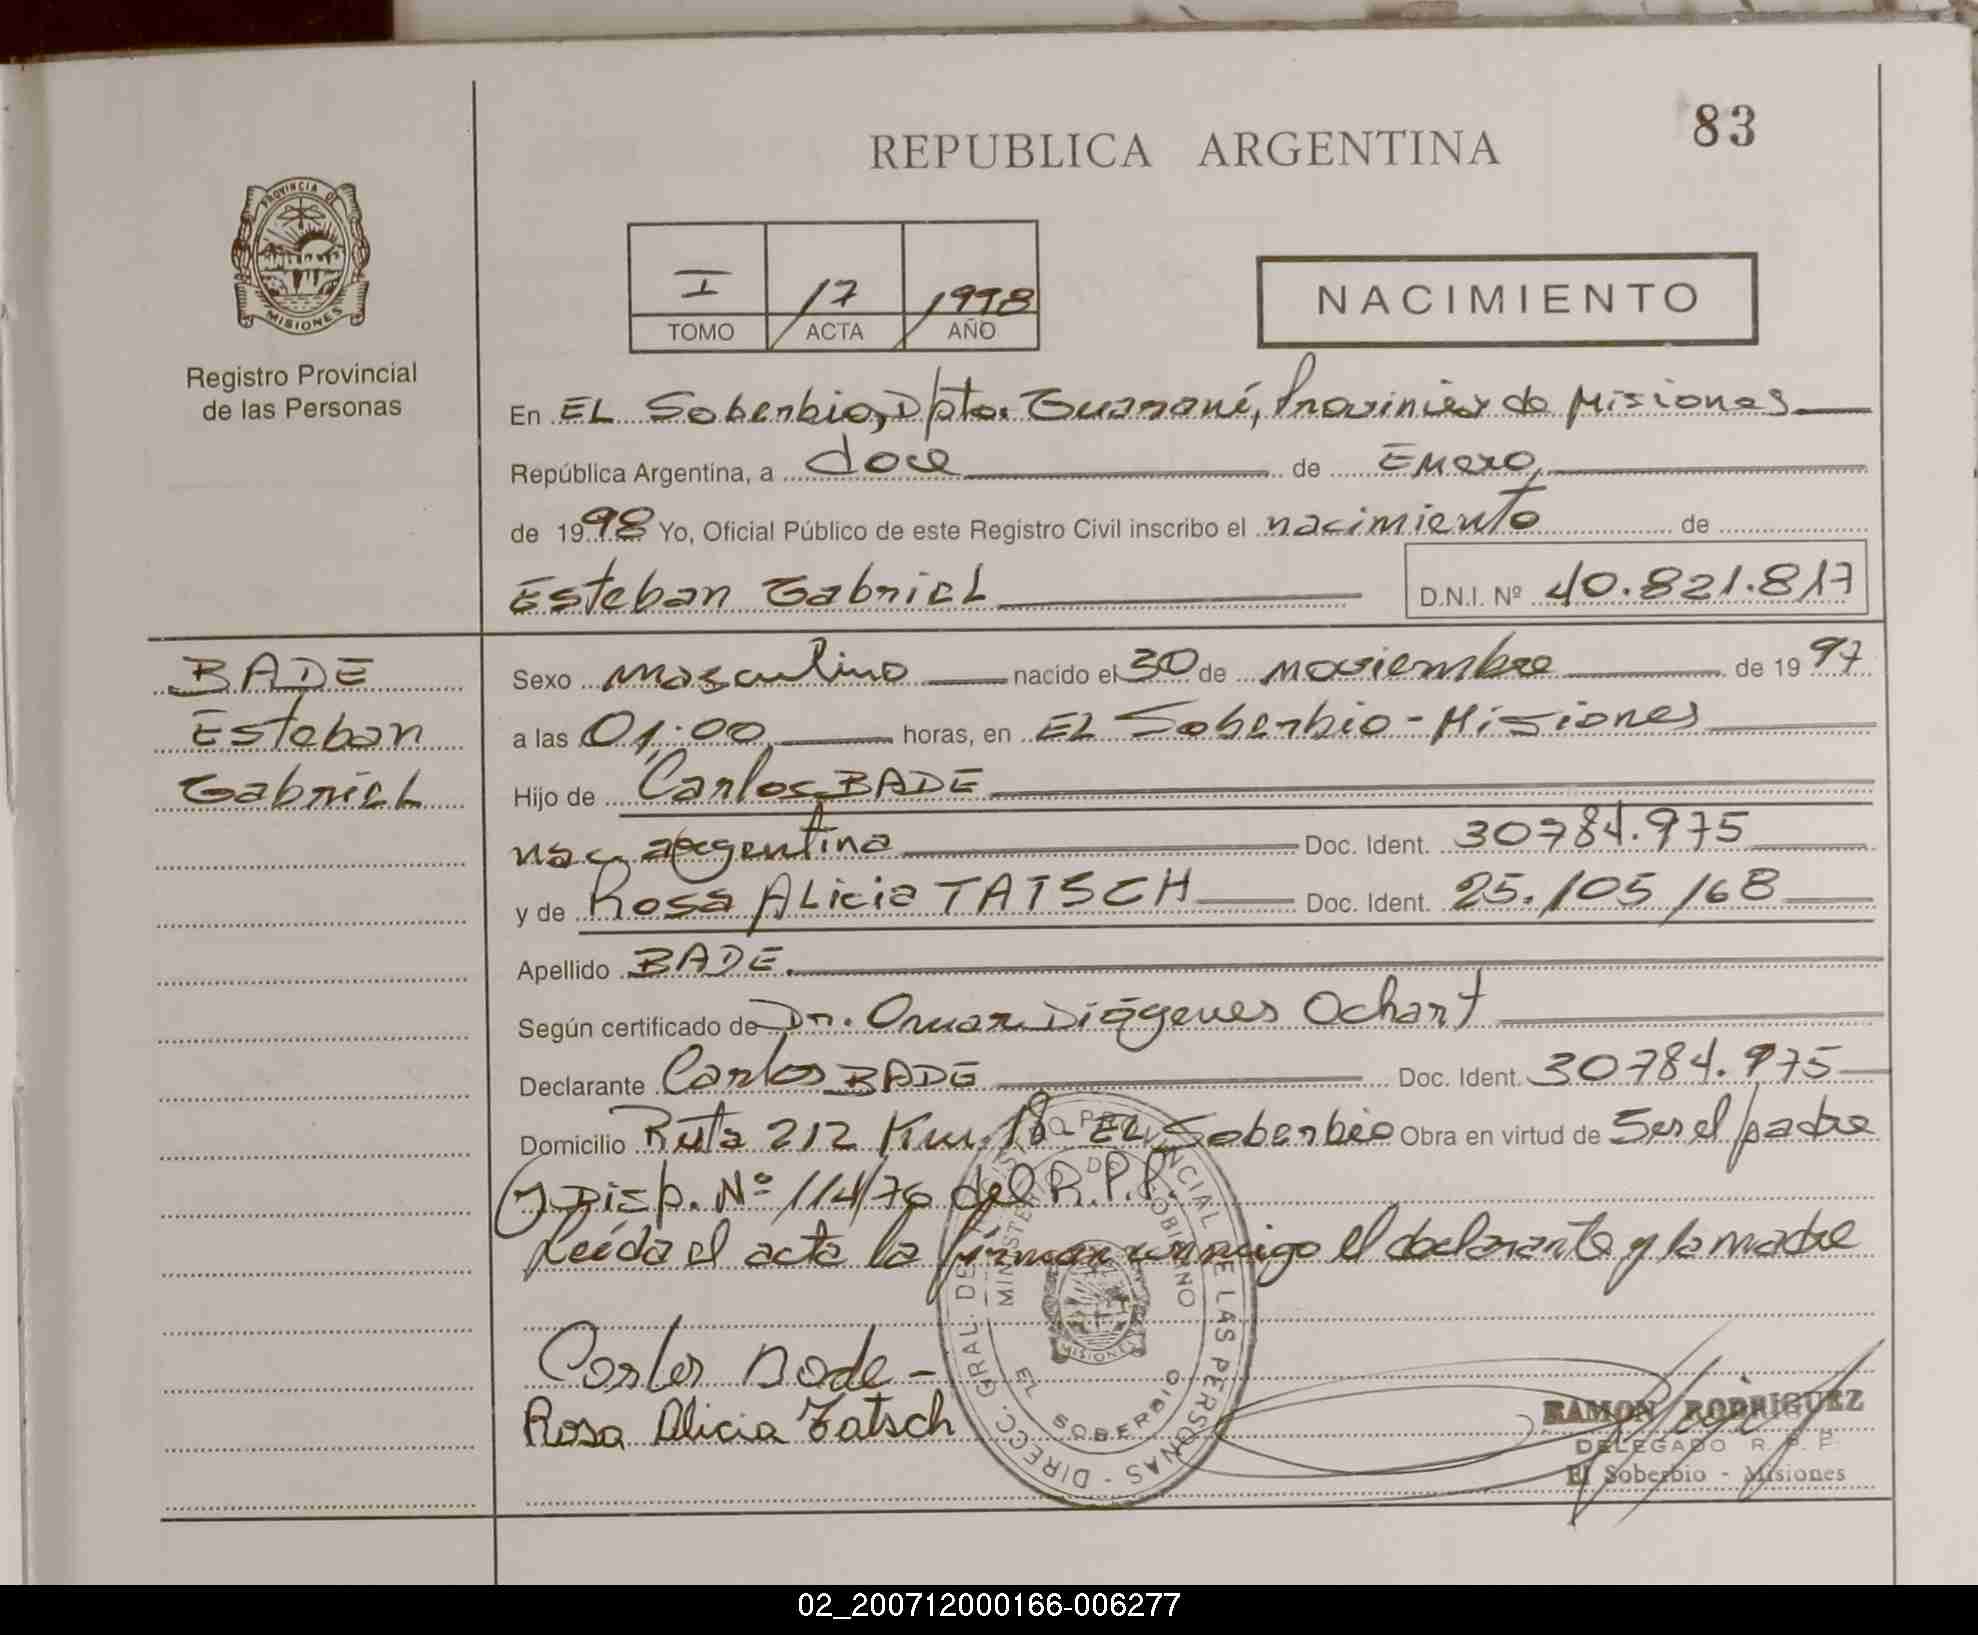 83
REPUBLICA ARGENTINA
PROVINCIA DE
MISIONES
Registro Provincial
de las Personas
I 17 1998
TOMO ACTA AÑO
NACIMIENTO
En EL Soberbio, Dpto. Guaraní, Provincia de Misiones
República Argentina, a doce de Enero,
de 1998 Yo, Oficial Público de este Registro Civil inscribo el nacimiento de
Esteban Gabriel D.N.I. Nº 40.821.817
BADE
Esteban
Gabriel
Sexo masculino nacido el 30 de noviembre de 1997
a las 01:00 horas, en EL Soberbio - Misiones
Hijo de Carlos BADE
nac. argentina Doc. Ident. 30784.975
y de Rosa ALicia TATSCH Doc. Ident. 25.105168
Apellido BADE.
Según certificado de Dr. Omar Diógenes Ochart
Declarante Carlos BADE Doc. Ident. 30784.975
Domicilio Ruta 212 Km. 18 EL Soberbio Obra en virtud de Ser el padre
y Disp. Nº 114/76 del R.P.P.
Leída el acta la firman conmigo el declarante y la madre
Carlos Bade -
Rosa Alicia Tatsch
DIRECC. GRAL. DEL REGISTRO PROVINCIAL DE LAS PERSONAS -
MINISTERIO DE GOBIERNO
MISIONES
EL SOBERBIO
RAMON RODRIGUEZ
DELEGADO R. P. P.
El Soberbio - Misiones
02_200712000166-006277